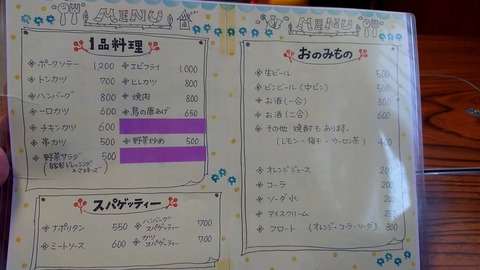 MENU
1品料理
ポークソテー 1,200
トンカツ 700
ハンバーグ 800
一口カツ 600
チキンカツ 600
串カツ 500
野菜サラダ 500
エビフライ 1,000
ヒレカツ 800
焼肉 800
鳥の唐あげ 650
野菜炒め 500
スパゲッティー
ナポリタン 550
ミートソース 600
ハンバーグ
スパゲッティー 700
カツ
スパゲッティー 700
MENU
おのみもの
生ビール 500
ビンビール(中ビン)
お酒(一合) 300
お酒(二合) 600
その他 焼酎もあります。
(レモン・梅干・ウーロン茶)
オレンジジュース
コーラ 200
ソーダ水
アイスクリーム
フロート (オレンジ・コーラ・ソーダ) 300